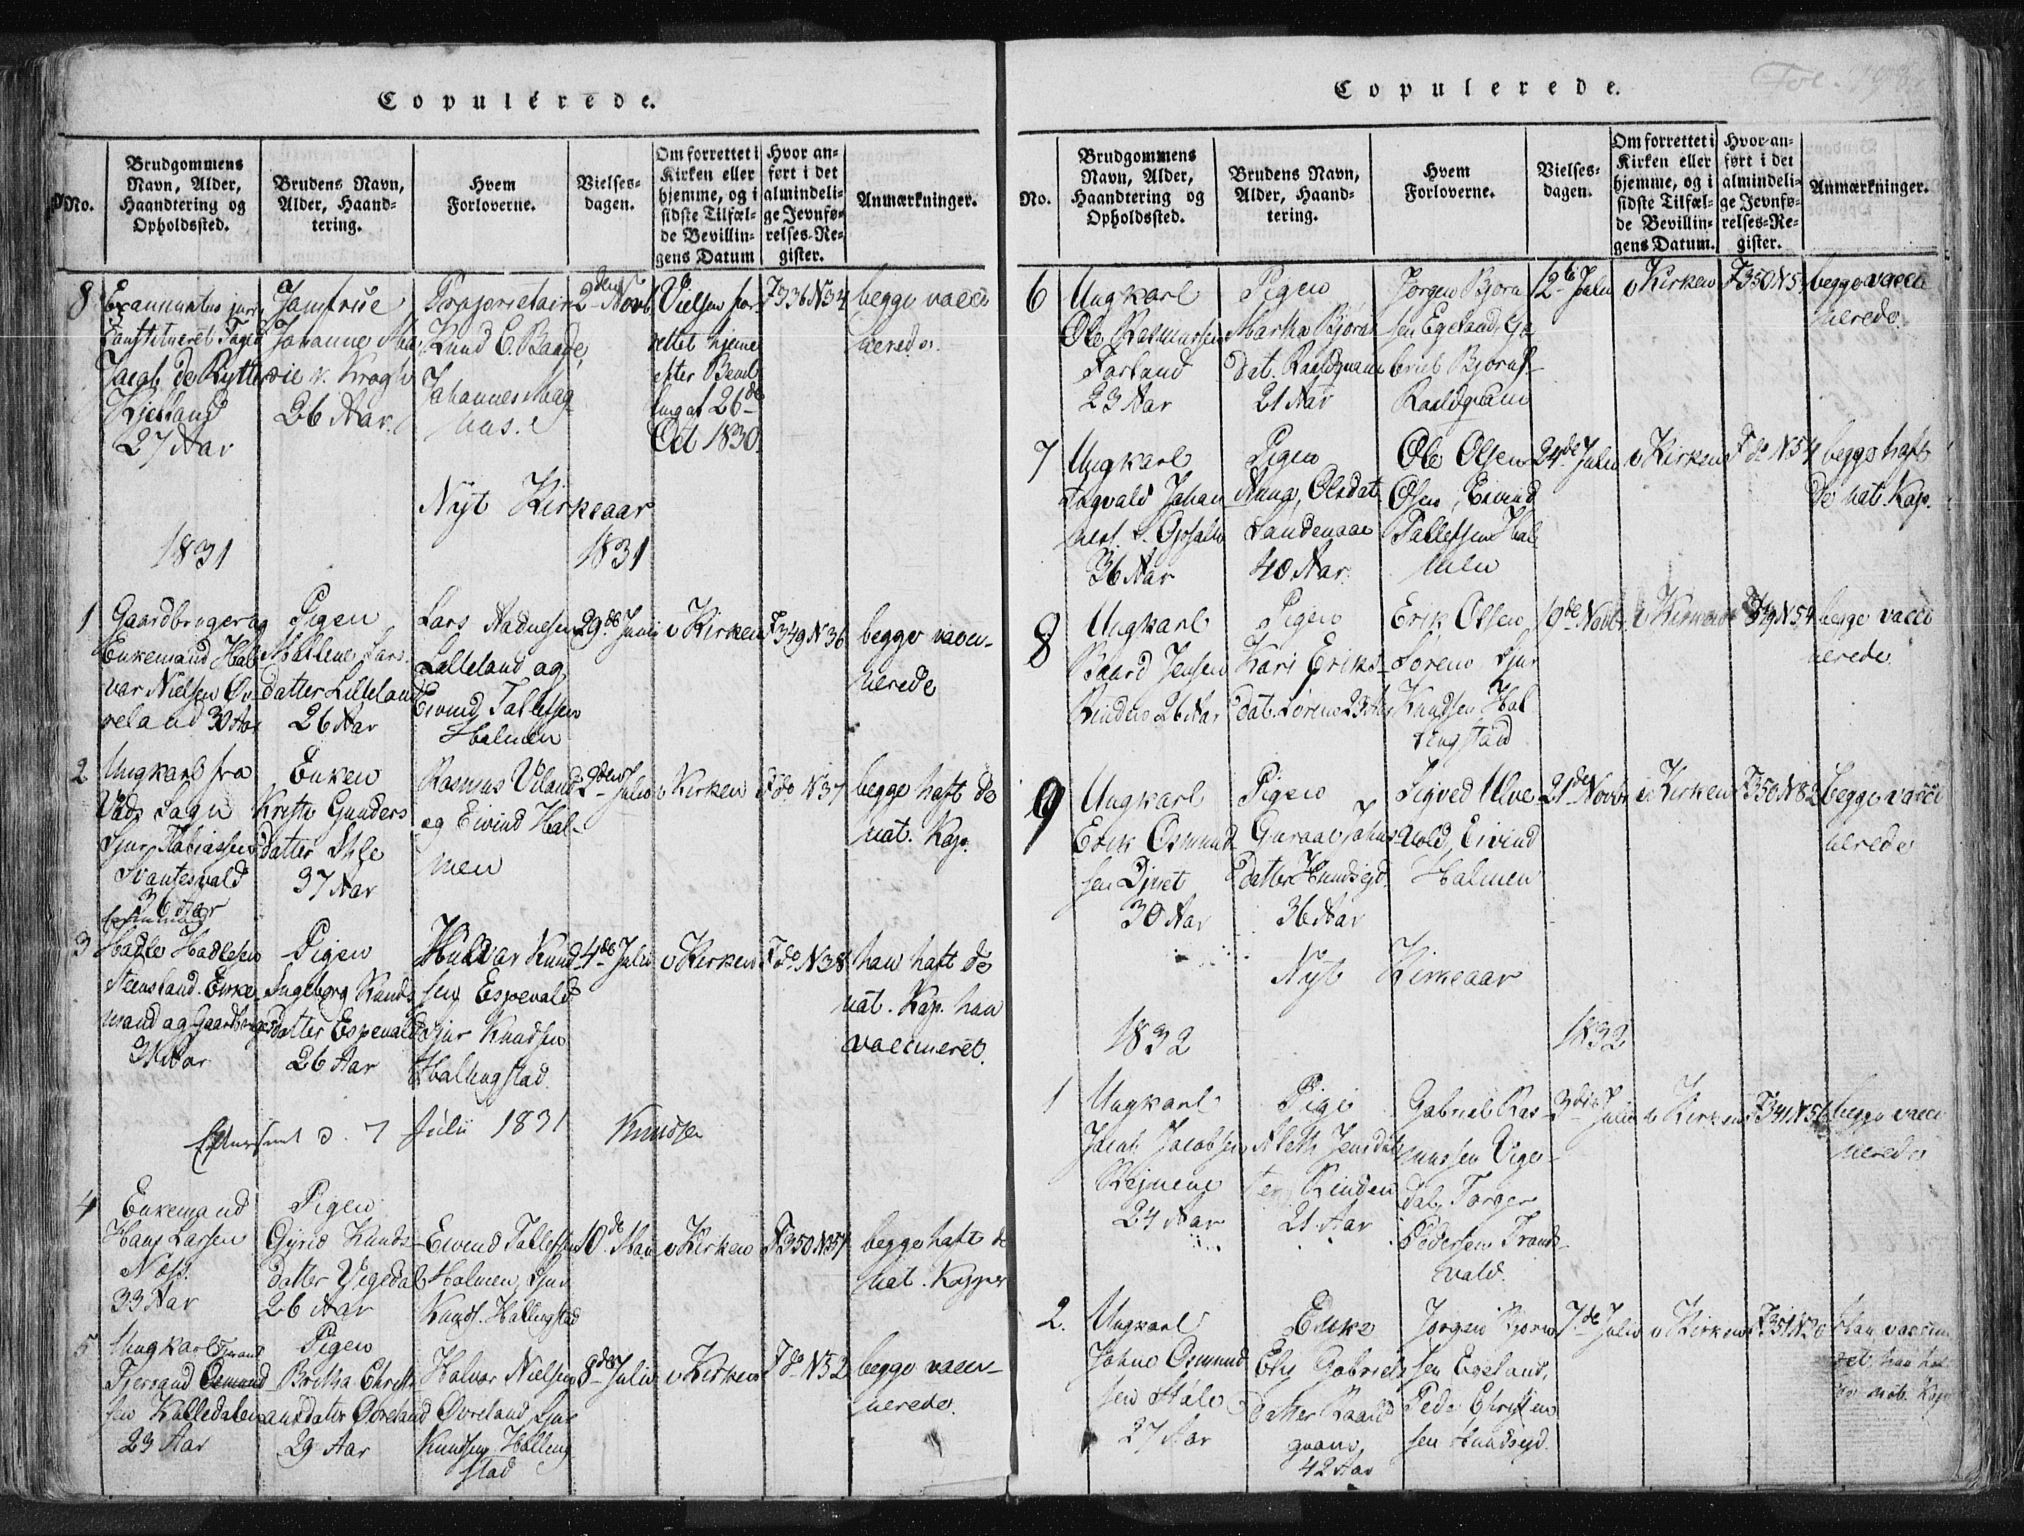 Copulerede.
No.
Brudgommens
Navn, Alder,
Haandtering og
Opholdssted.
Brudens Navn,
Alder, Haand-
tering.
Hvem
Forloverne.
Vielses-
dagen.
Om forrettet i
Kirken eller
hjemme, og i
sidste Tilfæl-
de Bevillin-
gens Datum
Hvor an-
ført i det
almindeli-
ge Jevnfø-
relses-Re-
gister.
Anmærkninger.
8
Examinatus juris
Constitueret Foged
Jacob de Rytter
Kjelland
27 Aar
Jomfrue
Johanne Ma-
rie v. Krogh
26 Aar.
Proprietair
Knud C. Baade,
Johannes Aag
2den Novb
Vielsen for-
rettet hjemme
efter Bevil-
ling af 26de
Oct 1830.
F336 N34
begge vacci
nerede.
Nyt Kirkeaar
1831
1831
1
Gaardbruger og
Enkemand Hal-
var Nielsen Øv-
reland 30 Aar
Pigen
Mallene Lars-
datter Lilleland
26 Aar
Lars Aadnesen
Lilleland og
Eivind Tallefsen
Halmen
29de Junii
i Kirken
F349 N36
begge vacci-
nerede
2
Ungkarl fra
Vads Sogn
Sjur Tobiassen
Svantesvald
36 Aar
Enken
Kristi Gunders
datter
37 Aar
Rasmus Üeland
og Eivind Hal-
men
2den Julii
i Kirken
F do N37
begge haft de
nat. Kop.
3
Hadle Hadlesen
Steensland. Enke-
mand og Gaardbruger
Pigen
Ingeborg Knuds
datter Espevald
26 Aar
Halvar Knud
sen Espevald
Sjur Knudsen
Hallingstad.
4de Julii
i Kirken
F do N38
han haft de
nat. Kop. hun
vaccineret.
d. 7 Julii 1831 Knudsen
4
Enkemand
Hans Larsen
Næss.
33 Aar
Pigen
Gyrid Knuds-
datter Vigedal
26 Aar
Eivind Tallefsen
Halmen, Sjur
Knuds. Hallingstad
10de Mai
i Kirken
F350 N51
begge haft de
nat. Kopper
5
Ungkarl
Tjerand Osmund
sen Kalledalen
23 Aar
Pigen
Britha Christi-
ansdatter Øvreland
29 Aar
Halvar Nielsen
Øvreland Sjur
Knudsen Halling
stad
8de Julii
i Kirken
F do N52
begge vacci-
nerede.
Copulerede.
Fol.
No.
Brudgommens
Navn, Alder,
Haandtering og
Opholdssted.
Brudens Navn,
Alder, Haand-
tering.
Hvem
Forloverne.
Vielses-
dagen.
Om forrettet i
Kirken eller
hjemme, og i
sidste Tilfæl-
de Bevillin-
gens Datum.
Hvor an-
ført i det
almindeli-
ge Jevnfø-
relses-Re-
gister.
Anmærkninger.
6
Ungkarl
Ole Rasmussen
Forland
23 Aar
Pigen
Martha Bjørns
dat. Raaldqvam
21 Aar
Jørgen Bjørn
sen Egeland, Ga
briel Bjørns.
Raaldqvam
12te Julii
i Kirken
F350 N5
begge vacci
nerede.
7
Ungkarl
Tagvald Johan
36 Aar
Pigen
Anna Olsdat.
Sandengaae
40 Aar.
Ole Olsen
Olsen, Eivind
Tallefsen Hal-
men
24de Julii
i Kirken
F do N54
begge haft
de nat. Kop.
8
Ungkarl
Baard Jensen
Kinden 26 Aar
Pigen
Kari Eriks-
dat. Lørene 23 Aar
Erik Olsen
Lørene Sjur
Knudsen Hal
lingstad
10de Novbr.
i Kirken
N54
begge vacci
nerede.
9
Ungkarl
Erik Osmund
sen
30 Aar
Pigen
datter Hundseid.
36 Aar
Sigved Ulve-
vold, Eivind
Halmen
21de Novbr
i Kirken
F350 N82
begge vacci
nerede
Nyt Kirkeaar
1832
1832
1
Ungkarl
Jacob Jacobsen
24 Aar
Pige
Aleth Jensdat
ter Kinden
21 Aar
Gabriel Ras-
mussen Vige-
dal, Torger
Pedersen Frank-
vald.
3die Julii
i Kirken
F341 N56
begge vacci
nerede.
2.
Ungkarl
Johne Osmund
sen
27 Aar
Enke
Else Gabriels
datter Raald
qvam,
42 Aar
Jørgen Bjørn
sen Egeland,
Peder Christen
sen Hundseid.
7de Julii
i Kirken
F351 N20